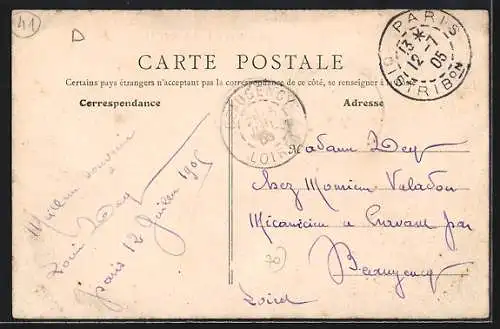 41
D
CARTE POSTALE
Certains pays étrangers n'acceptant pas la correspondance de ce côté, se renseigner à la
Correspondance
Adresse
PARIS
13 * 12 - 7 05
DISTRIBON
BEAUGENCY
LOIRET
Meilleur souvenir
Louis Dey
Paris 12 Juillet 1905
Madame Dey
chez Monsieur Valadon
Mécanicien à Cravant par
Beaugency
Loiret